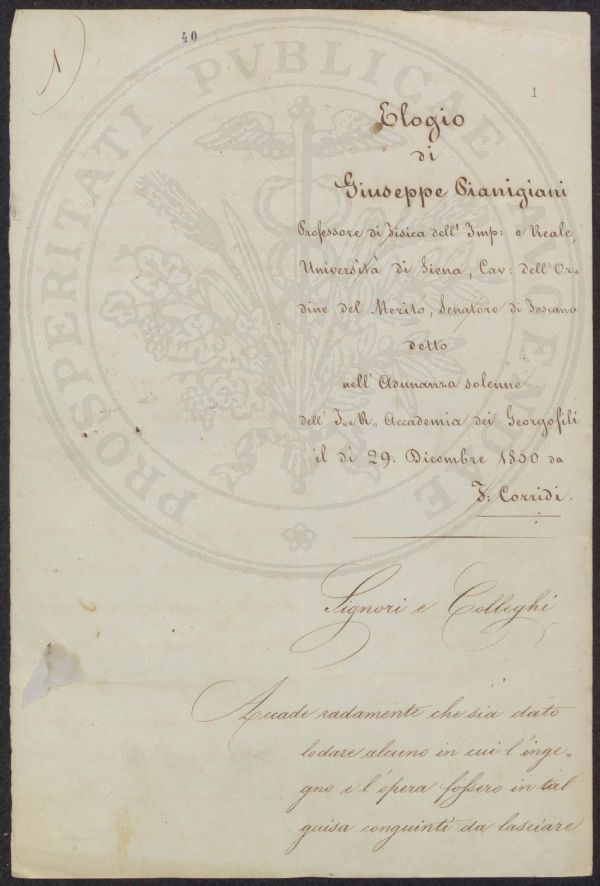 40
1)
1
Elogio
di
Giuseppe Pianigiani
Professore di Fisica dell' Imp: e Reale,
Università di Siena, Cav: dell' Or=
dine del Merito, Senatore di Toscana
detto
nell' Adunanza solenne
dell' I. e R. Accademia dei Georgofili
il dì 29. Dicembre 1850 da
F: Corridi.
Signori e Colleghi
Accade radamente che sia dato
lodare alcuno in cui l'inge=
gno e l'opera fossero in tal
guisa congiunti da lasciare
PROSPERITATI PVBLICAE AVGENDAE